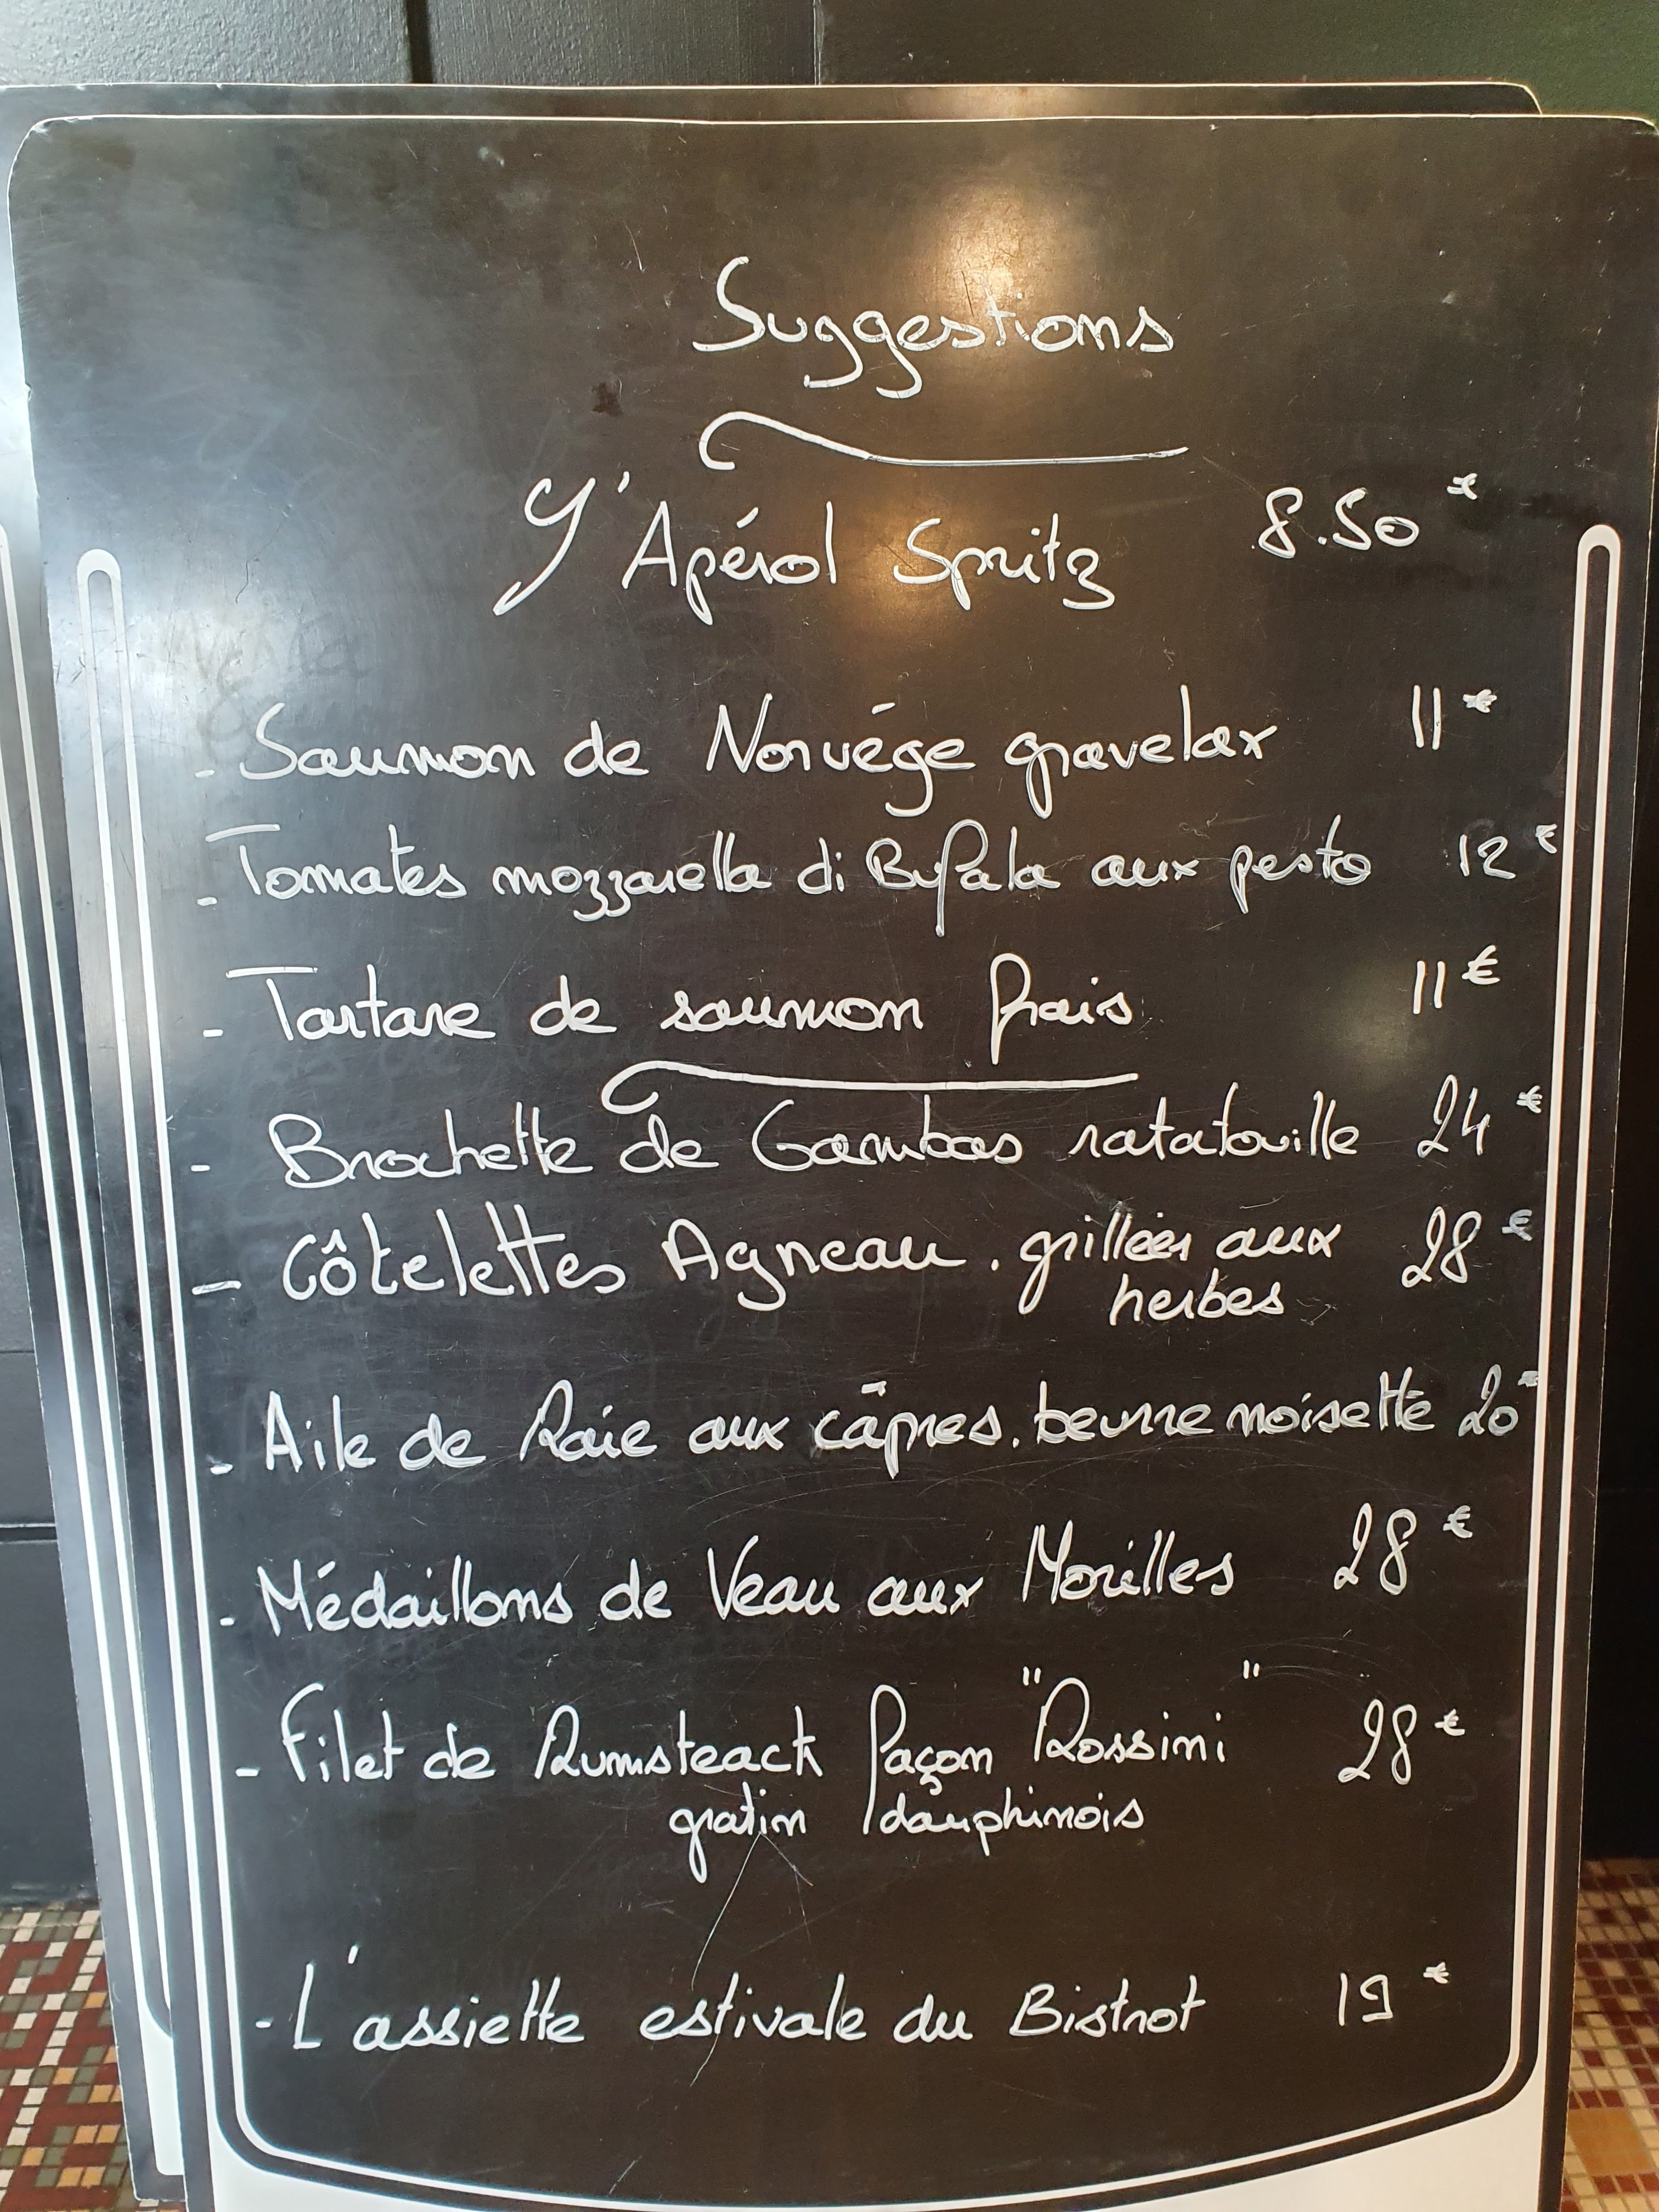 Suggestions
L'Apérol Spritz 8.50 €
- Saumon de Norvège gravelax 11 €
- Tomates mozzarella di Bufala aux pesto 12 €
- Tartare de saumon frais 11 €
- Brochette de Gambas ratatouille 24 €
- Côtelettes Agneau. grillées aux 28 €
herbes
- Aile de Raie aux câpres. beurre noisette 20 €
- Médaillons de Veau aux Morilles 28 €
- Filet de Rumsteack façon "Rossini" 28 €
gratin dauphinois
- L'assiette estivale du Bistrot 19 €